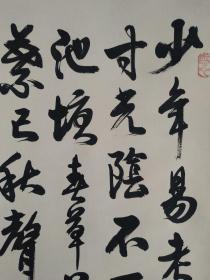 少年易老
寸光陰不可
池塘春草
葉已秋聲